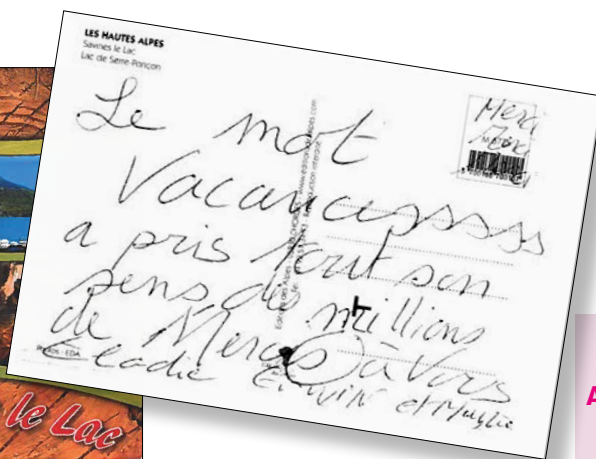 LES HAUTES ALPES
Savines le Lac
Lac de Serre-Ponçon
Merci
Le mot
Vacancesssss
a pris tout son
sens des millions
de Mercis à Vous
Elodie Erwin et
EDA
le Lac
A